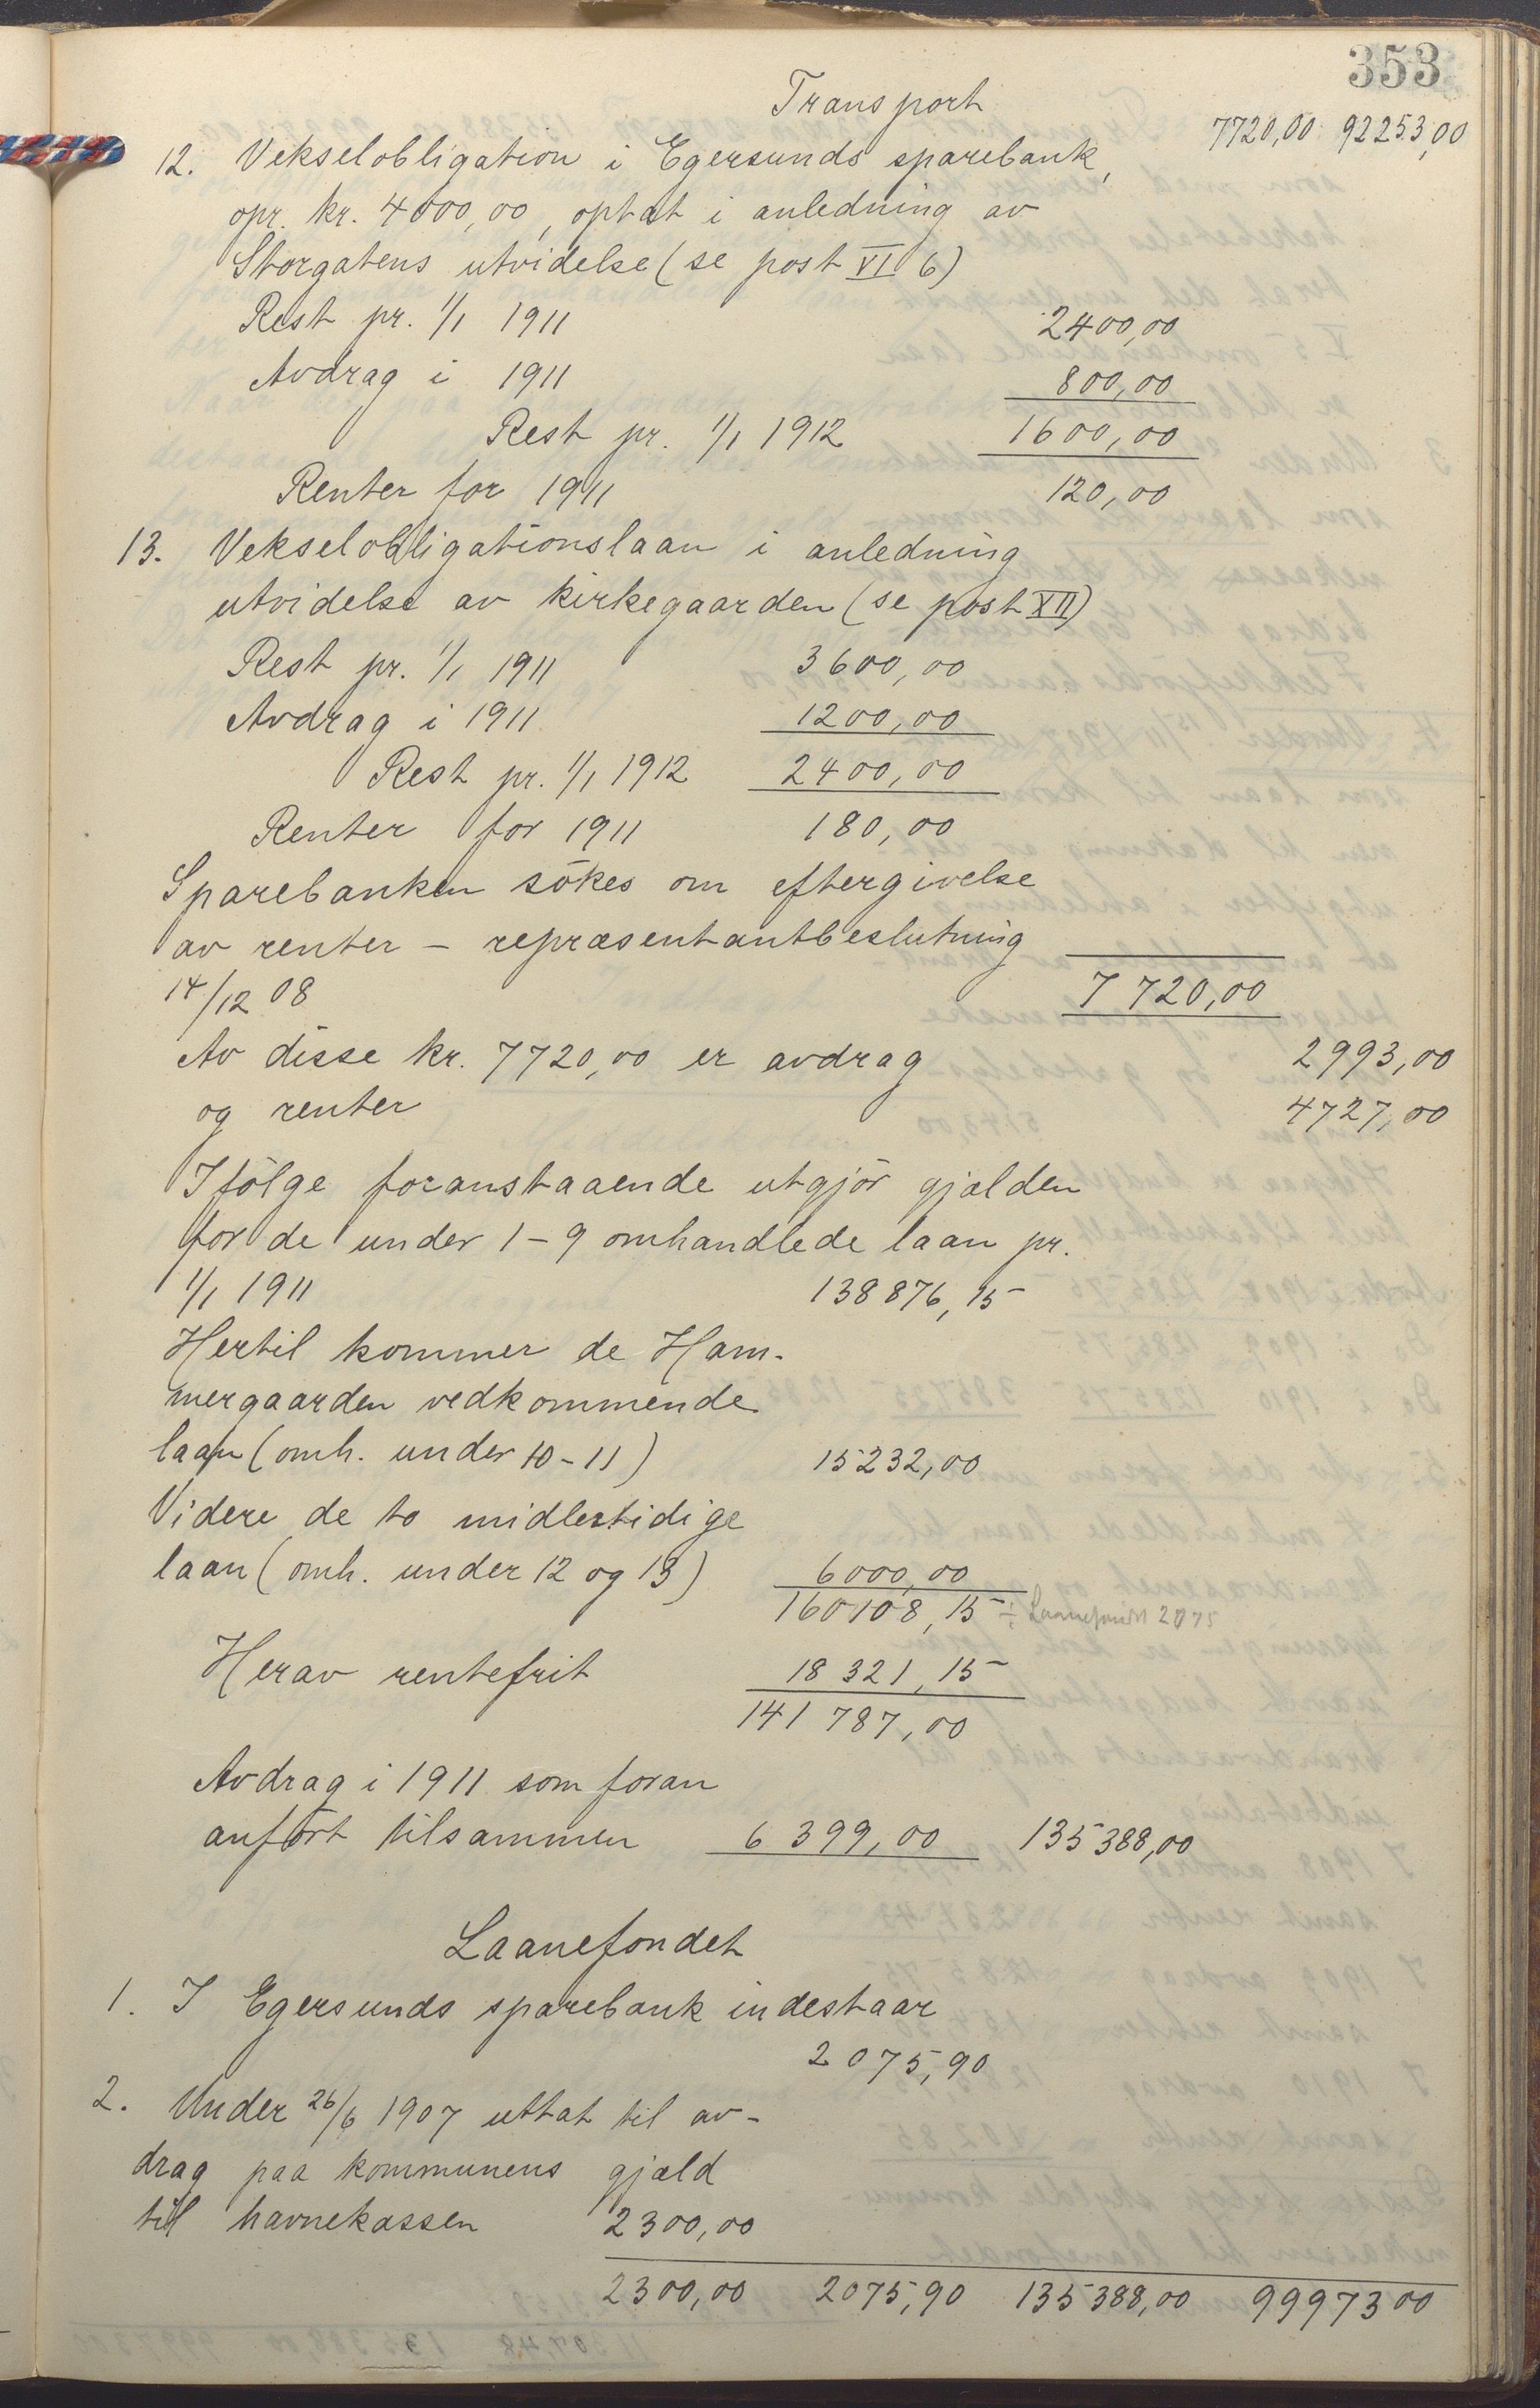 353
Transport 7720,00 92253,00
12. Vekselobligation i Egersunds sparebank,
opr. kr. 4000,00, optat i anledning av
Storgatens utvidelse (se post VI 6)
Rest pr. 1/1 1911 2400,00
Avdrag i 1911 800,00
Rest pr. 1/1 1912 1600,00
Renter for 1911 120,00
13. Vekselobligationslaan i anledning
utvidelse av kirkegaarden (se post XII)
Rest pr. 1/1 1911 3600,00
Avdrag i 1911 1200,00
Rest pr. 1/1 1912 2400,00
Renter for 1911 180,00
Sparebanken sökes om eftergivelse
av renter – repræsentantbeslutning
14/12 08 7720,00
Av disse kr. 7720,00 er avdrag 2993,00
og renter 4727,00
Ifölge foranstaaende utgjör gjælden
for de under 1-9 omhandlede laan pr.
1/1 1911 138876,15
Hertil kommer de Ham-
mergaarden vedkommende
laan (omh. under 10-11) 15232,00
Videre de to midlertidige
laan (omh. under 12 og 13) 6000,00
160108,15 ÷ Laanefondet 2075
Herav rentefrit 18321,15
141787,00
Avdrag i 1911 som foran
anfört tilsammen 6399,00 135388,00
Laanefondet
1. I Egersunds sparebank indestaar
2075,90
2. Under 26/6 1907 uttat til av-
drag paa kommunens gjæld
til havnekassen 2300,00
2300,00 2075,90 135388,00 99973 00